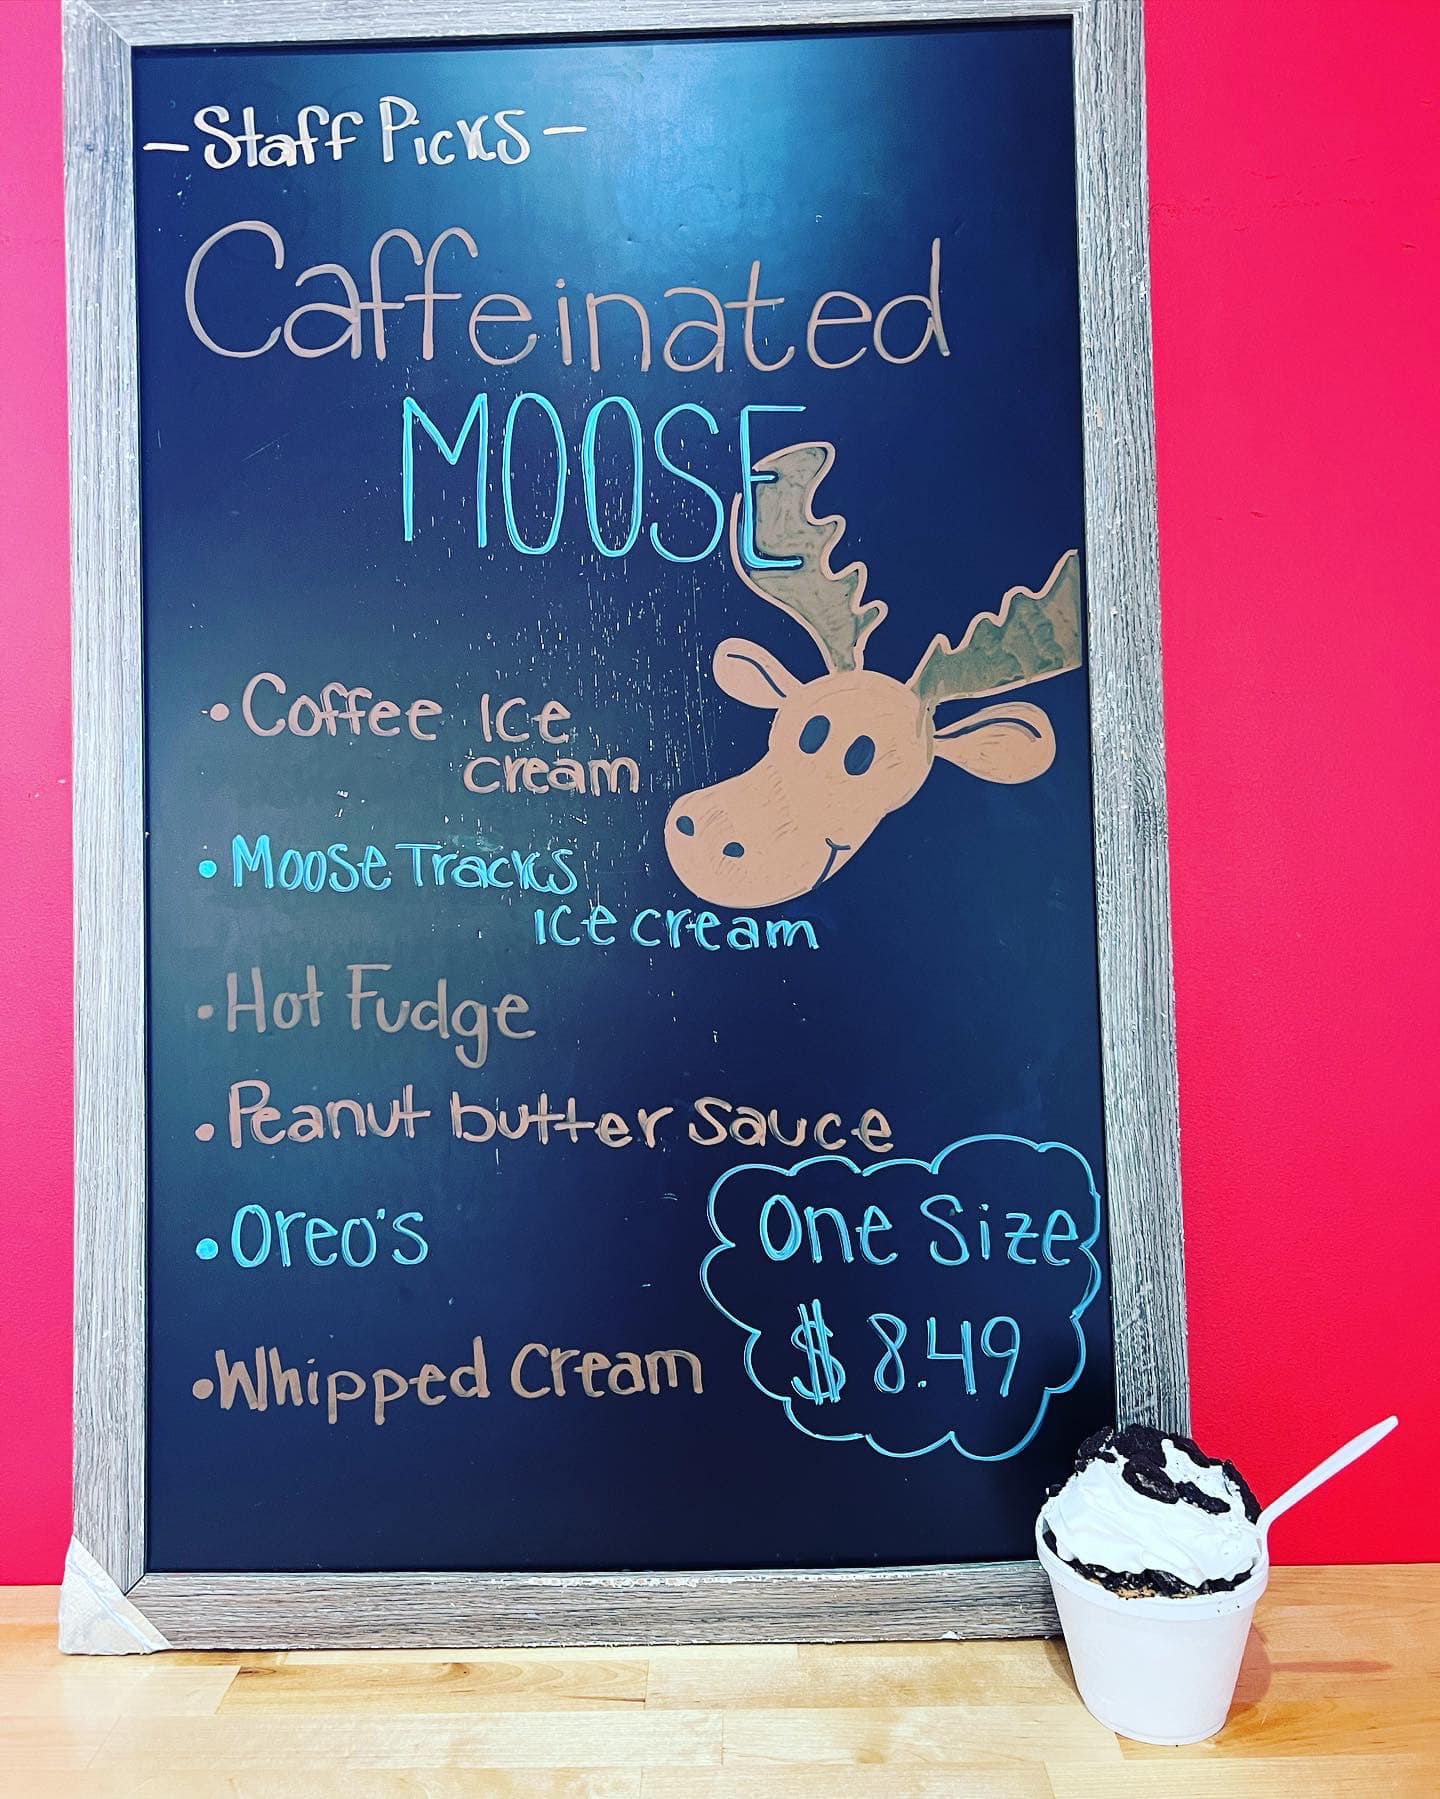 - Staff Picks -
Caffeinated
MOOSE
• Coffee Ice
cream
• Moose Tracks
Ice cream
• Hot Fudge
• Peanut butter Sauce
• Oreo's
• Whipped Cream
One Size
$ 8.49